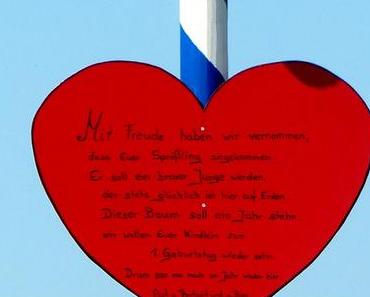 Mit Freude haben wir vernommen,
dass Euer Sprößling angekommen.
Er soll ein braver Junge werden,
der stets glücklich ist hier auf Erden.
Dieser Baum soll ein Jahr stehn
wir wollen Euer Kindlein zum
1. Geburtstag wieder sehn.
Drum